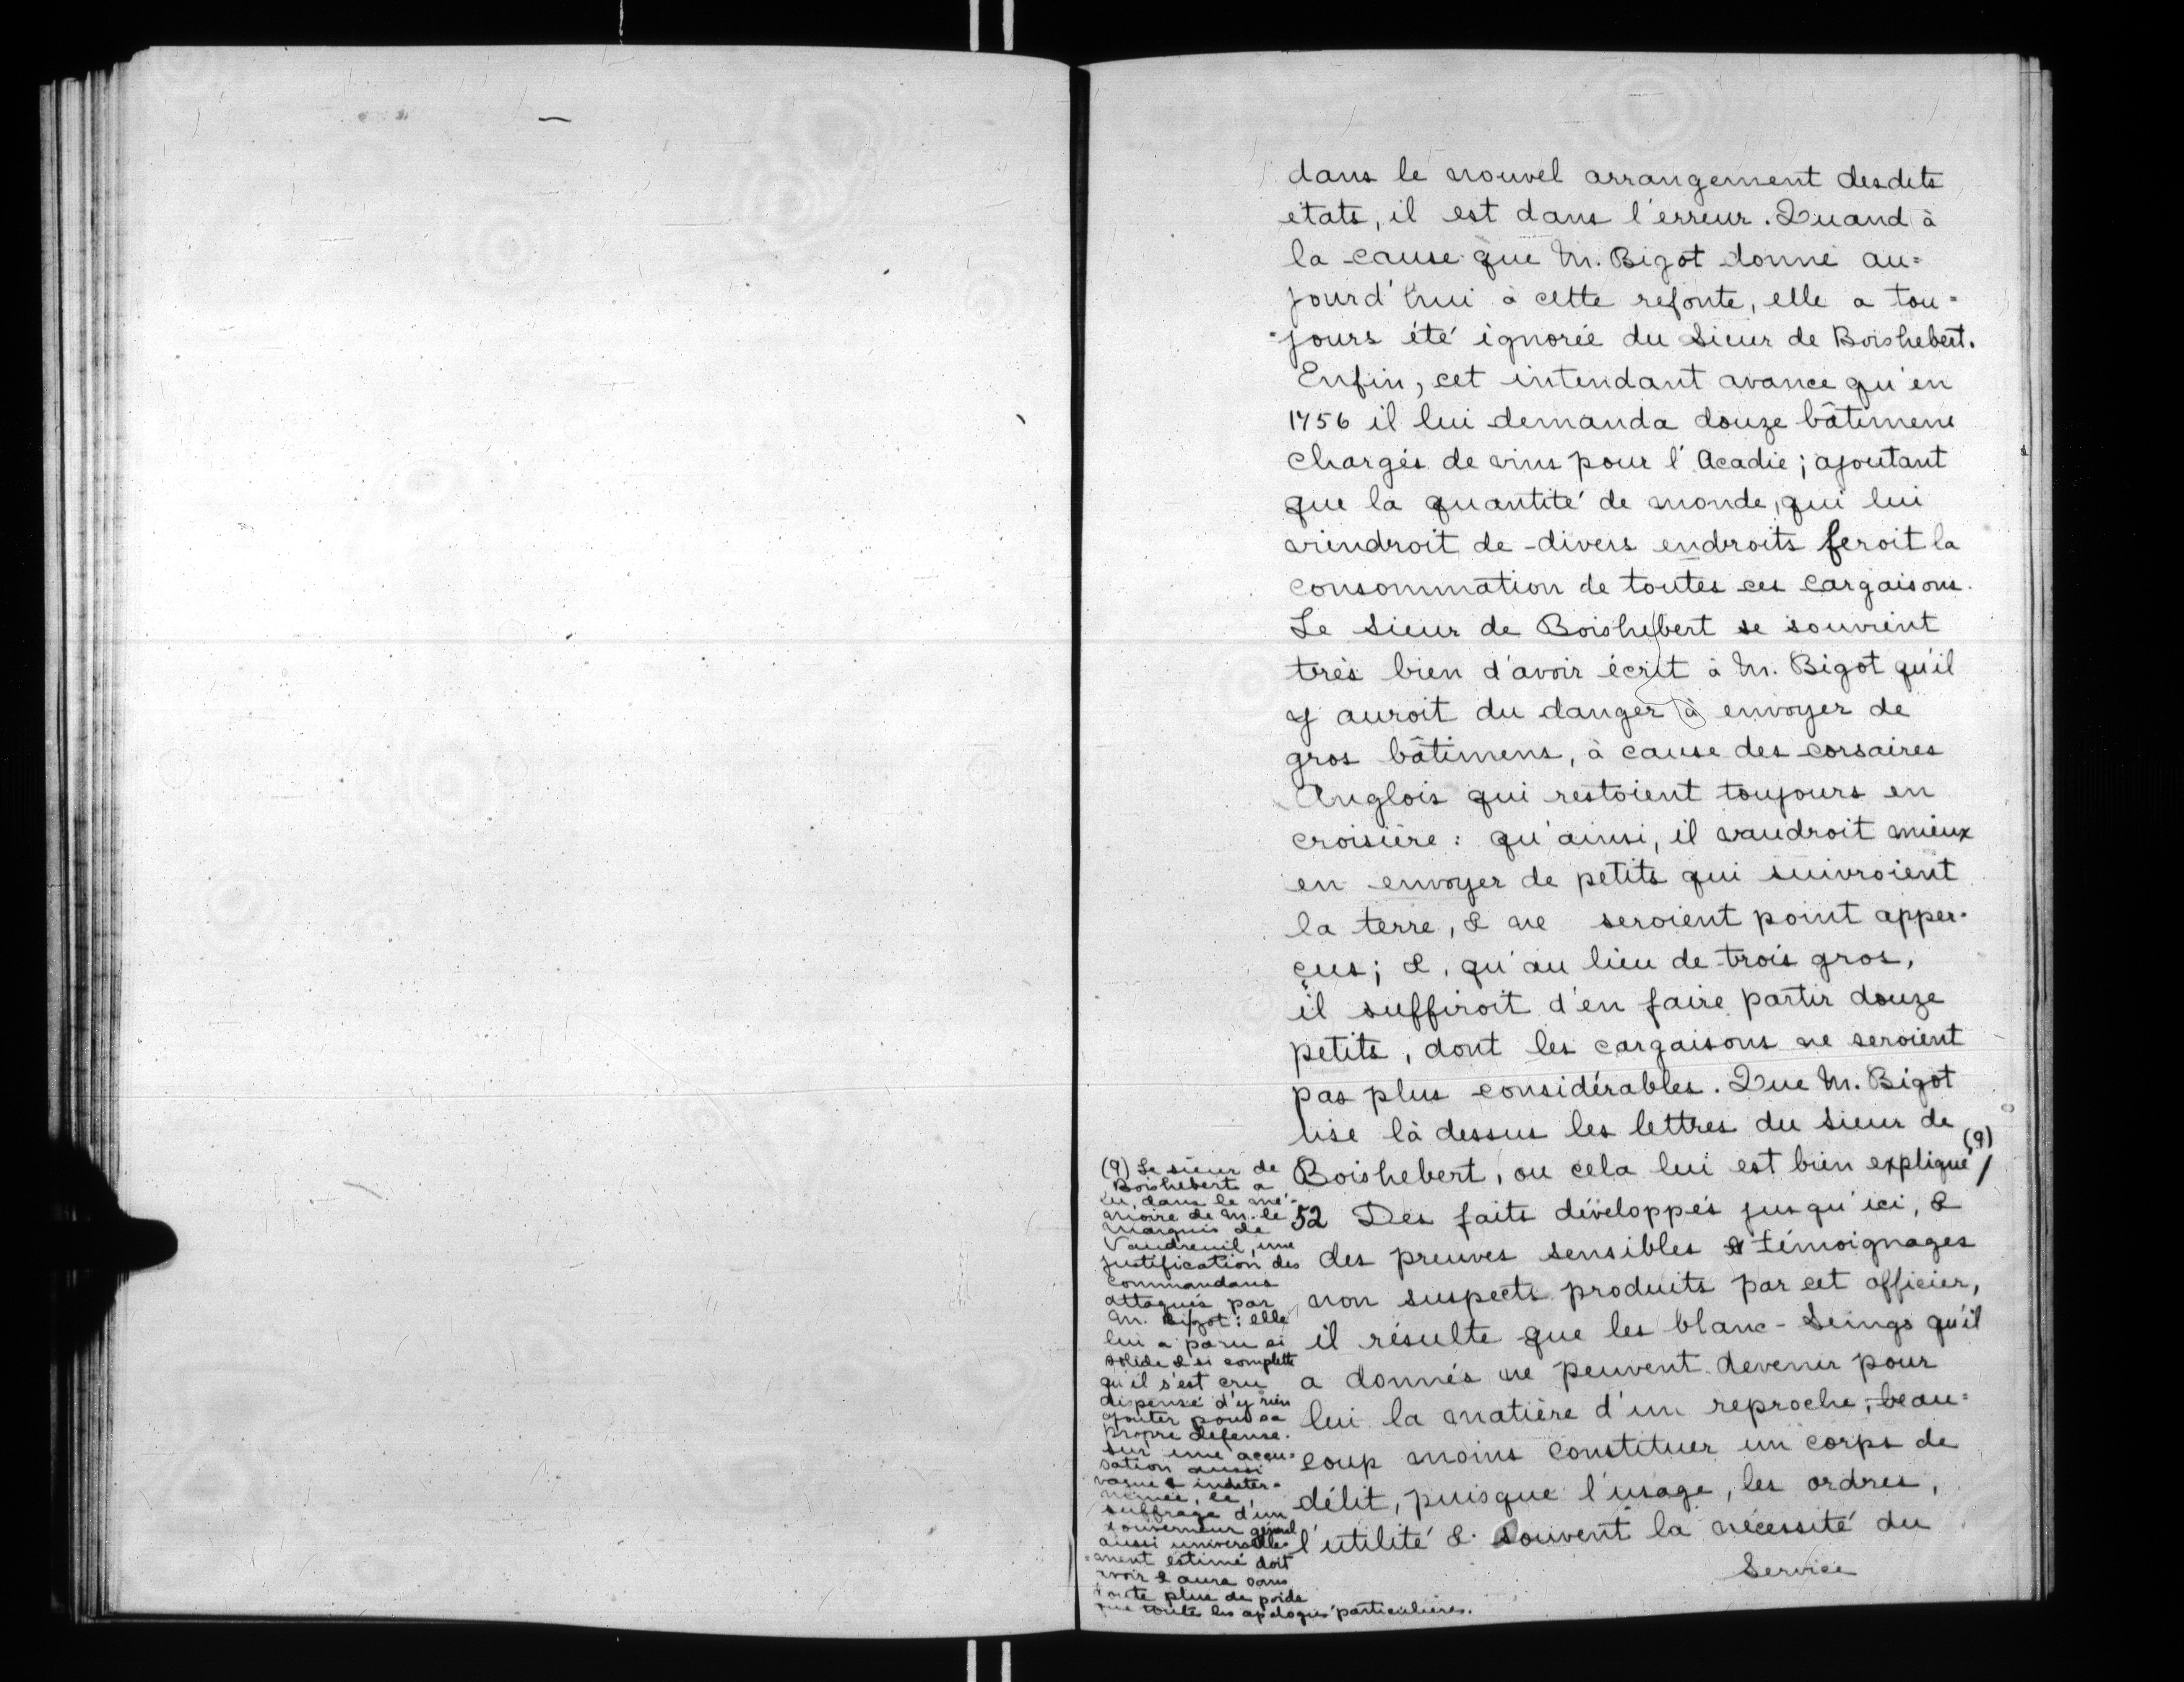 dans le nouvel arrangement desdits
etats, il est dans l'erreur. Quand à
la cause que M. Bigot donne au=
jourd'hui à cette refonte, elle a tou=
=jours été ignorée du Sieur de Boishebert.
Enfin, cet intendant avance qu'en
1756 il lui demanda douze bâtimens
chargés de vins pour l'Acadie; ajoutant
que la quantité de monde, qui lui
viendroit de divers endroits feroit la
consommation de toutes ces cargaisons.
Le Sieur de Boishebert se souvient
très bien d'avoir écrit à M. Bigot qu'il
y auroit du danger à envoyer de
gros bâtimens, à cause des corsaires
Anglois qui restoient toujours en
croisière: qu'ainsi, il vaudroit mieux
en envoyer de petits qui suivroient
la terre, & ne seroient point apper=
çus; &, qu'au lieu de trois gros,
il suffiroit d'en faire partir douze
petits, dont les cargaisons ne seroient
pas plus considérables. Que M. Bigot
lise là dessus les lettres du Sieur de
Boishebert, ou cela lui est bien expliqué (9)/
52 Des faits développés jusqu'ici, &
des preuves sensibles & témoignages
non suspects produits par cet officier,
il résulte que les blanc-Seings qu'il
a donnés ne peuvent devenir pour
lui la matière d'un reproche; beau=
coup moins constituer un corps de
délit, puisque l'usage, les ordres,
l'utilité & souvent la nécessité du
Service
(9) Le sieur de
Boishebert a
lu, dans le mé=
moire de M. le
Marquis de
Vaudreuil, une
justification des
commandans
attaqués par
M. Bigot: elle
lui a paru si
solide & si complette
qu'il s'est cru
dispensé d'y rien
ajouter pour sa
propre défense.
Sur une accu=
sation aussi
vague & indéter=
minée, le
suffrage d'un
Gouverneur général
aussi universelle=
=ment estimé doit
avoir & aura sans
doute plus de poids
que toutes les apologies particulières.